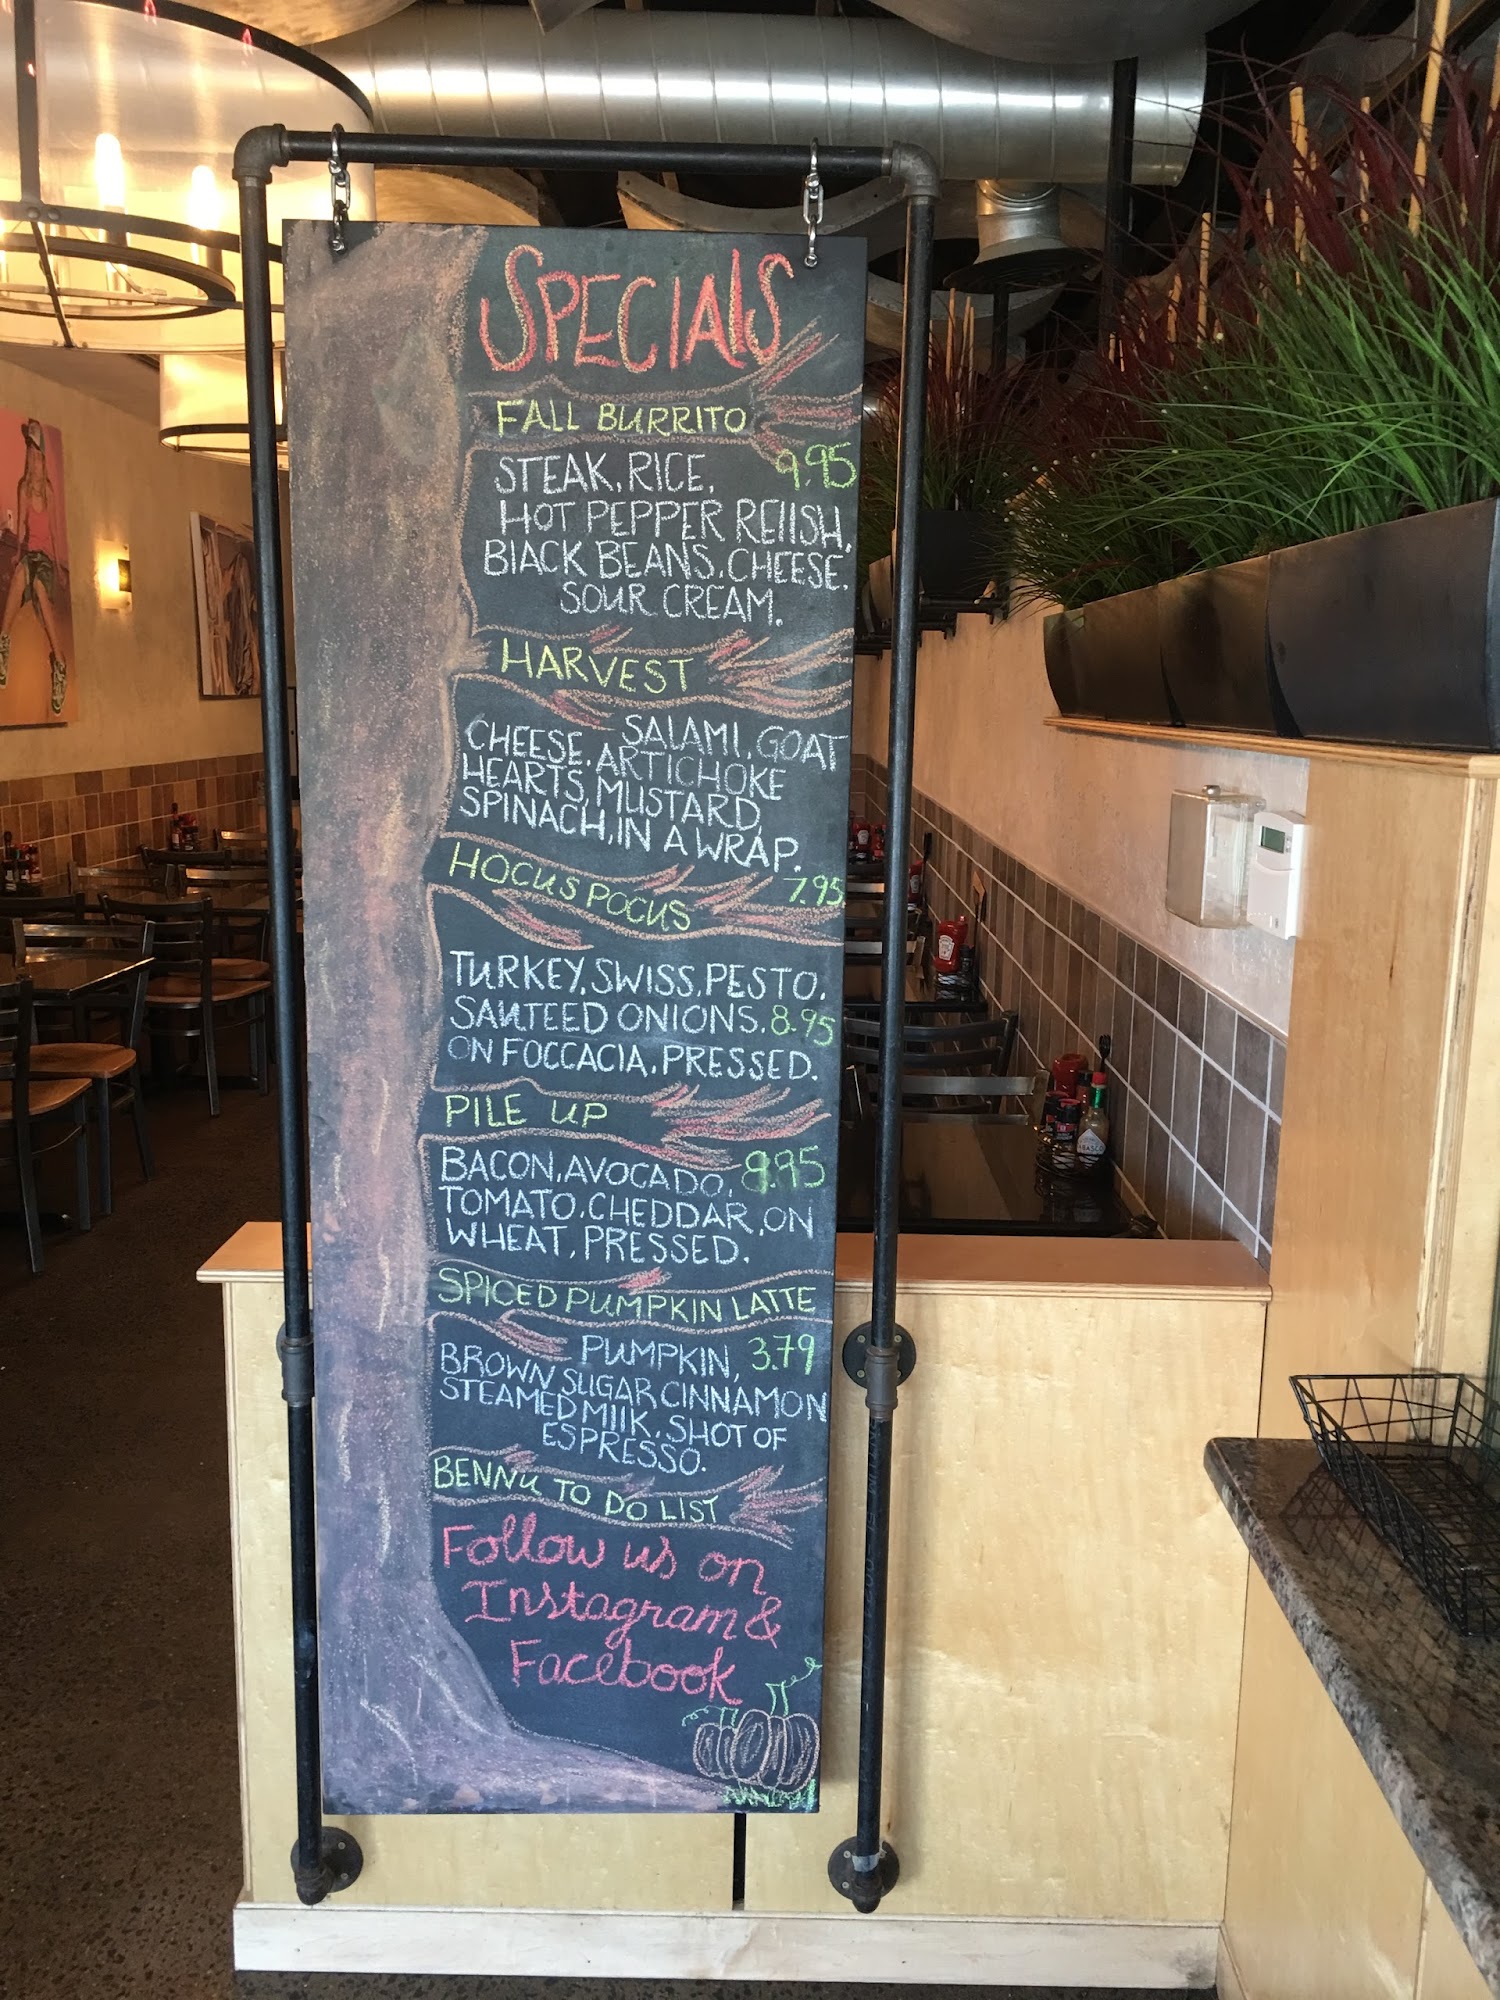 SPECIALS
FALL BURRITO
STEAK, RICE, 9.95
HOT PEPPER RELISH,
BLACK BEANS, CHEESE,
SOUR CREAM.
HARVEST
SALAMI, GOAT
CHEESE, ARTICHOKE
HEARTS, MUSTARD,
SPINACH, IN A WRAP.
7.95
HOCUS POCUS
TURKEY, SWISS, PESTO,
SAUTEED ONIONS, 8.95
ON FOCCACIA, PRESSED.
PILE UP
BACON, AVOCADO, 8.95
TOMATO, CHEDDAR, ON
WHEAT, PRESSED.
SPICED PUMPKIN LATTE
PUMPKIN, 3.79
BROWN SUGAR CINNAMON
STEAMED MILK, SHOT OF
ESPRESSO.
BENNU TO DO LIST
Follow us on
Instagram &
Facebook